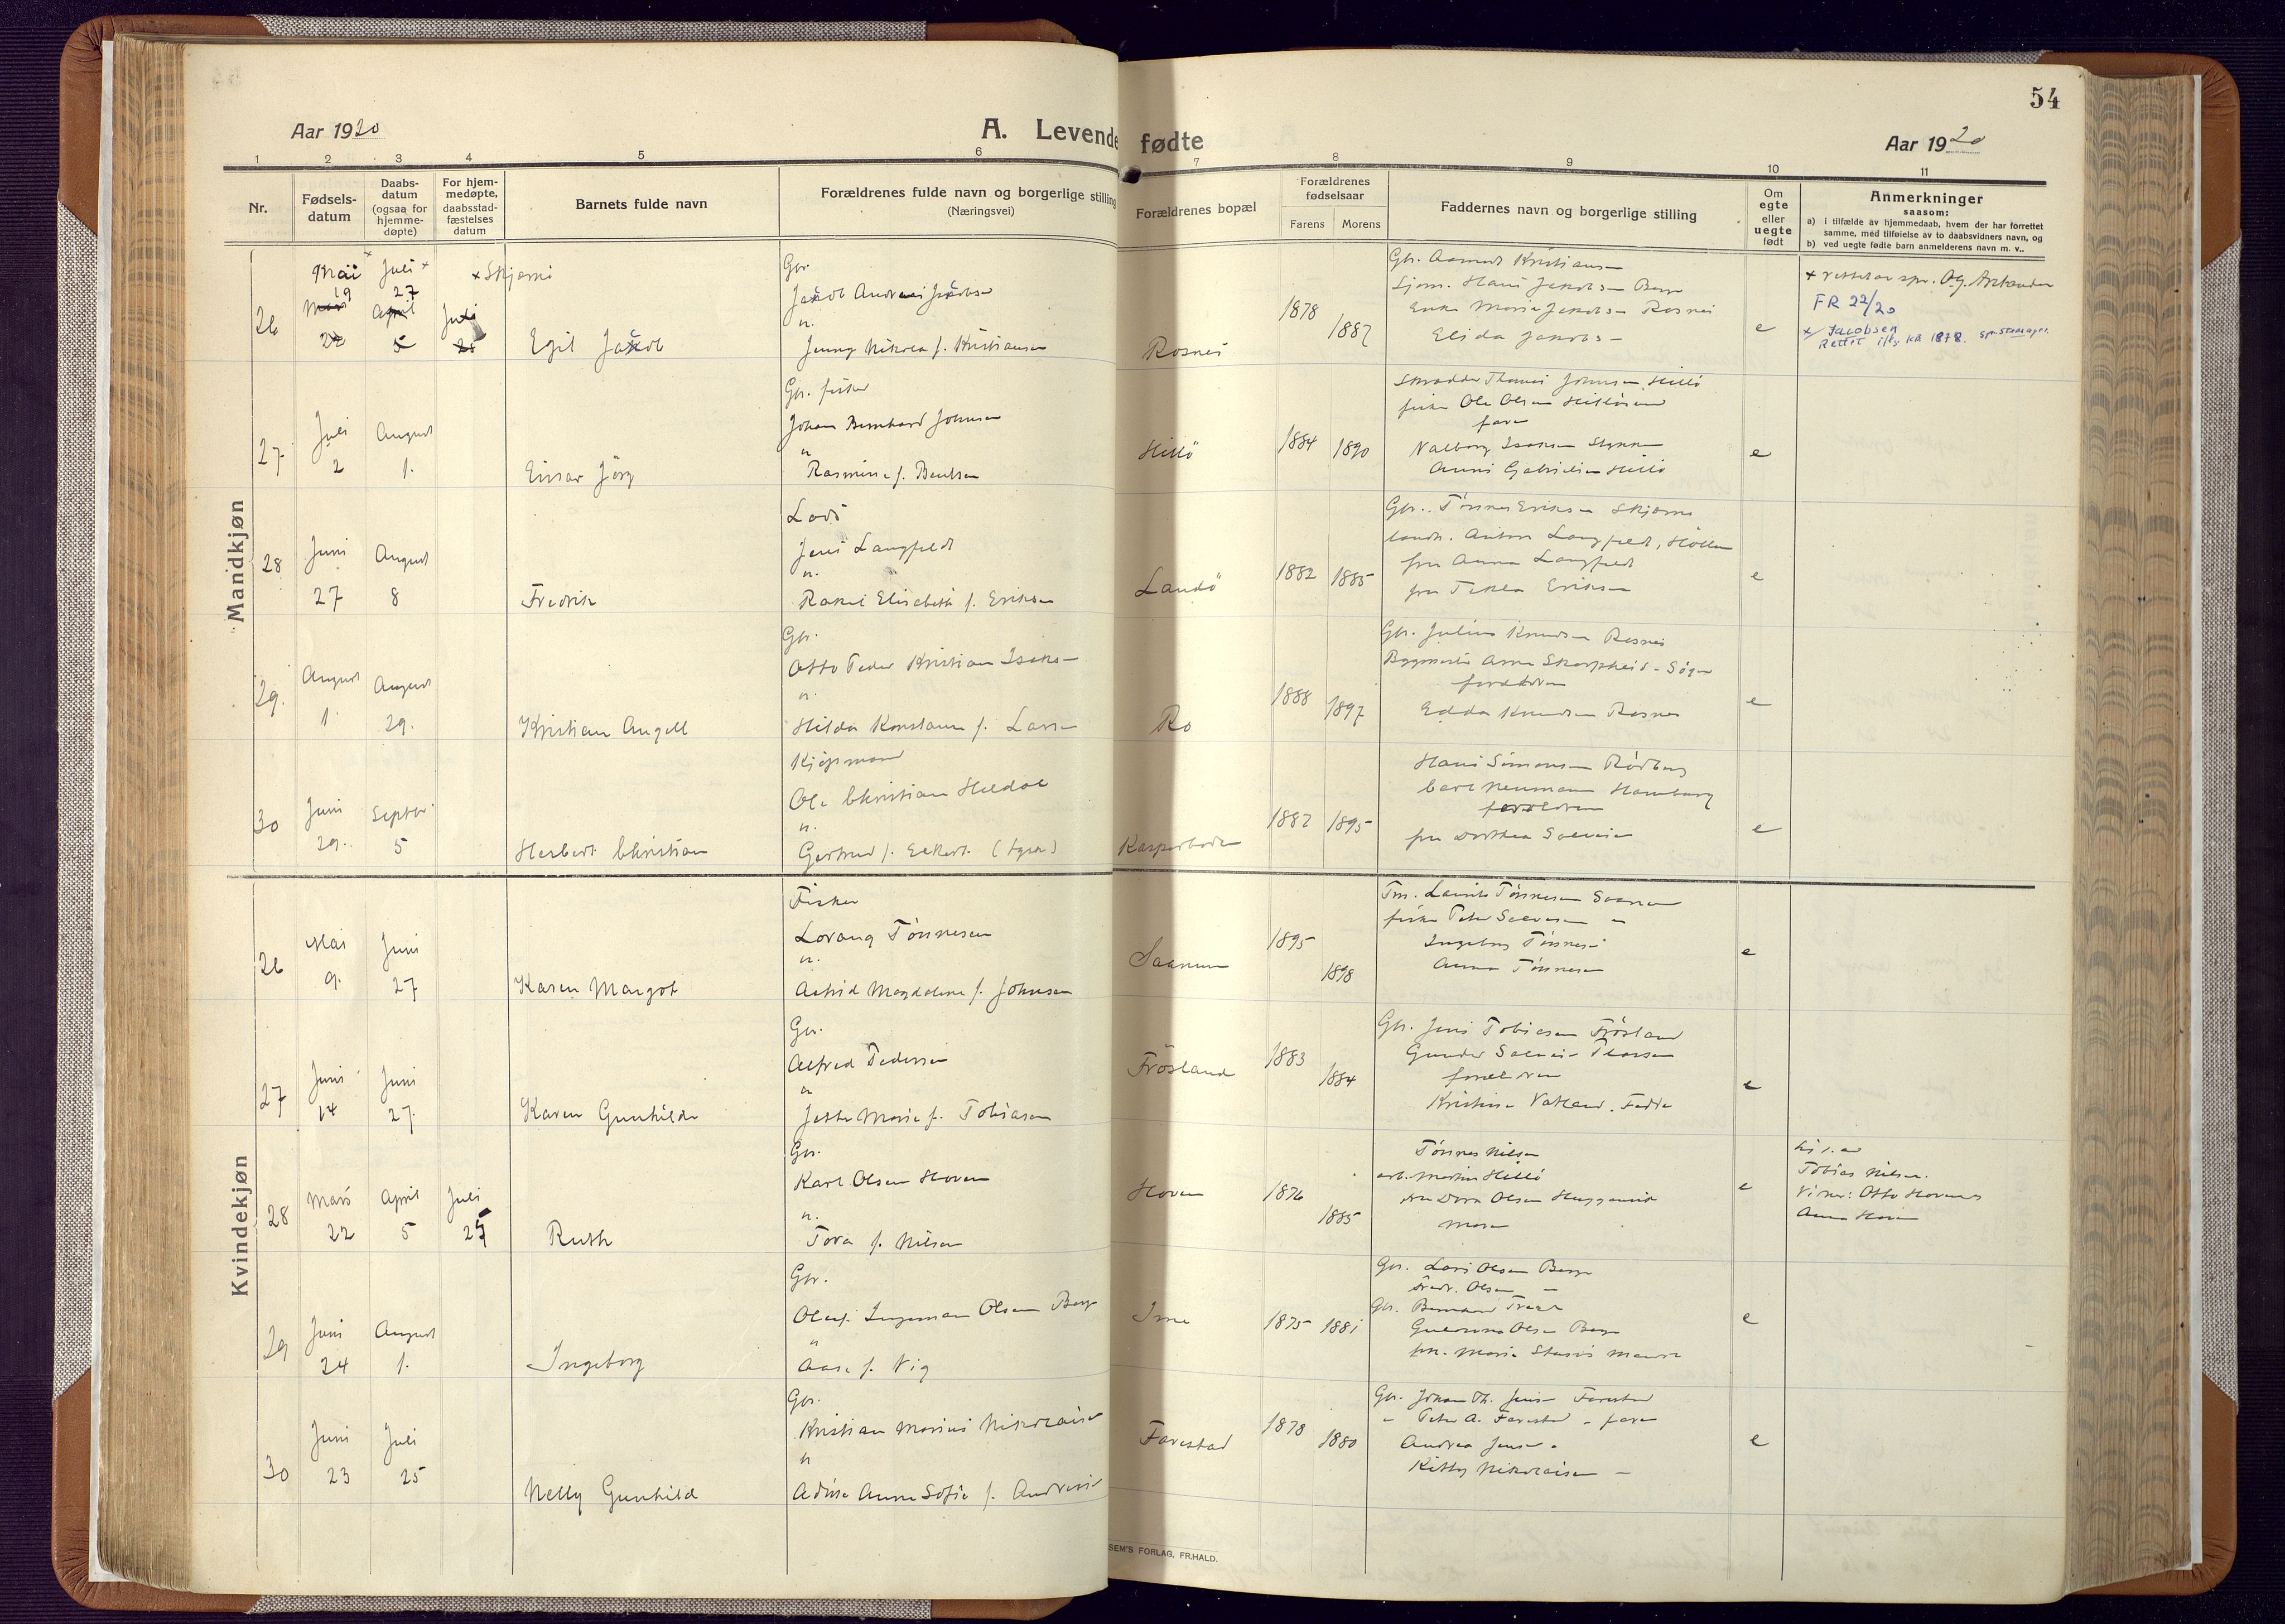 54
Aar 1920
A. Levende fødte
Aar 1920
1 2 3 4 5 6 7 8 9 10 11
Nr.
Fødsels-
datum
Daabs-
datum
(ogsaa for
hjemme-
døpte)
For hjem-
medøpte,
daabsstad-
fæstelses
datum
Barnets fulde navn
Forældrenes fulde navn og borgerlige stilling
(Næringsvei)
Forældrenes bopæl
Forældrenes
fødselsaar
Farens Morens
Faddernes navn og borgerlige stilling
Om
egte
eller
uegte
født
Anmerkninger
saasom:
a) i tilfælde av hjemmedaab, hvem der har forrettet
samme, med tilføielse av to daabsvidners navn, og
b) ved uegte fødte barn anmelderens navn m. v..
Mandkjøn
26
Mai 19
Juli 27
April 5
Egil Jacob
Gbr.
Jacob Andreas Jacobsen
u.
Jenny Nikolea f. Kristiansen
Rosnes
1878 1882
Gbr. Aamund Kristiansen
Hans Jakobsen Berge
Enke Marie Jakobsen Rosnes
Elida Jakobs-
e
FR 22/20
x/ Jacobsen
Rettet iflg. kb 1878.
27
Juli 2
August 1.
Einar Jörg
Gbr. fisker
Johan Bernhard Johnsen
u
Rasmine f. Bentsen
Hillö
1884 1890
Skrædder Thomas Johnsen Hillö
fisker Ole Olsen
far
Valborg Isaksen
Anni Gabrielsen Hillö
e
28
Juni 27
August 8
Fredrik
Lods
Jens Langfeldt
u.
Rakel Elisabeth f. Eriksen
Landö
1882 1885
Gbr. Tönnes Eriksen Skjernö
Anton Langfeldt, Höllen
fru Anna Langfeldt
fru Tekla Eriksen
e
29.
August 1.
August 29.
Kristian Angell
Gbr.
Otto Peder Kristian Isaks-
u.
Hilda Konstanse f. Larsen
Ro
1888 1897
Gbr. Julius Knudsen Rosnes
Bygmester Arne Skarpheid - Søgne
forældrene
Edda Knudsen Rosnes
e
30
Juni 29.
Septbr. 5
Herbert Christian
Kjøpmand
Ole Christian Heldal
u.
Gertrud f. Eckert (tysk)
Kaspersboden
1882 1895
Hans Simonsen Rödberg
Carl Neumann Hamburg
forældrene
fru Dorthea
e
Kvindekjøn
26
Mai 9.
Juni 27
Karen Margot
Fisker
Lorang Tönnesen
u.
Astrid Magdalene f. Johnsen
Saanum
1895 1898
Laurits Tönnesen Saanum
fisker Peter Salvesen "
Ingeborg Tönnesen
Anna Tönnesen
e
27
Juni 14
Juni 27.
Karen Gunhilde
Gbr.
Alfred Pedersen
u
Jette Marie f. Tobiasen
Frösland
1883 1884
Gbr. Jens Tobiasen Frösland
forældrene
Kristine Vatland.
e
28
Mars 22
April 5
Juli 25
Ruth
Gbr.
Karl Olsen Hoven
u.
Tora f. Nilsen
Hoven
1876 1885
Tönnes Nilsen
Martin Hillö
Dora Olsen
moren
e
Tobias Nilsen.
Vidner: Otto Hoven
Anna Hoven
29
Juni 24
August 1.
Ingeborg
Gbr.
Olaf Ingeman Olsen Berge
u
Aase f. Vig
Ime
1875 1881
Gbr. Lars Olsen Berge
Fredr. Olsen "
Gbr. Bernhard
Olsen Berge
e
30
Juni 23
Juli 25
Nelly Gunhild
Gbr.
Kristian Marius Nikolaisen
u
Adine Anne Sofie f. Andresen
Farestad
1878 1880
Gbr. Johan Th. Jensen Farestad
" Peter A. Farestad - faren
Andrea Jensen
Kitty Nikolaisen -
e
SEM'S FORLAG, FR.HALD.